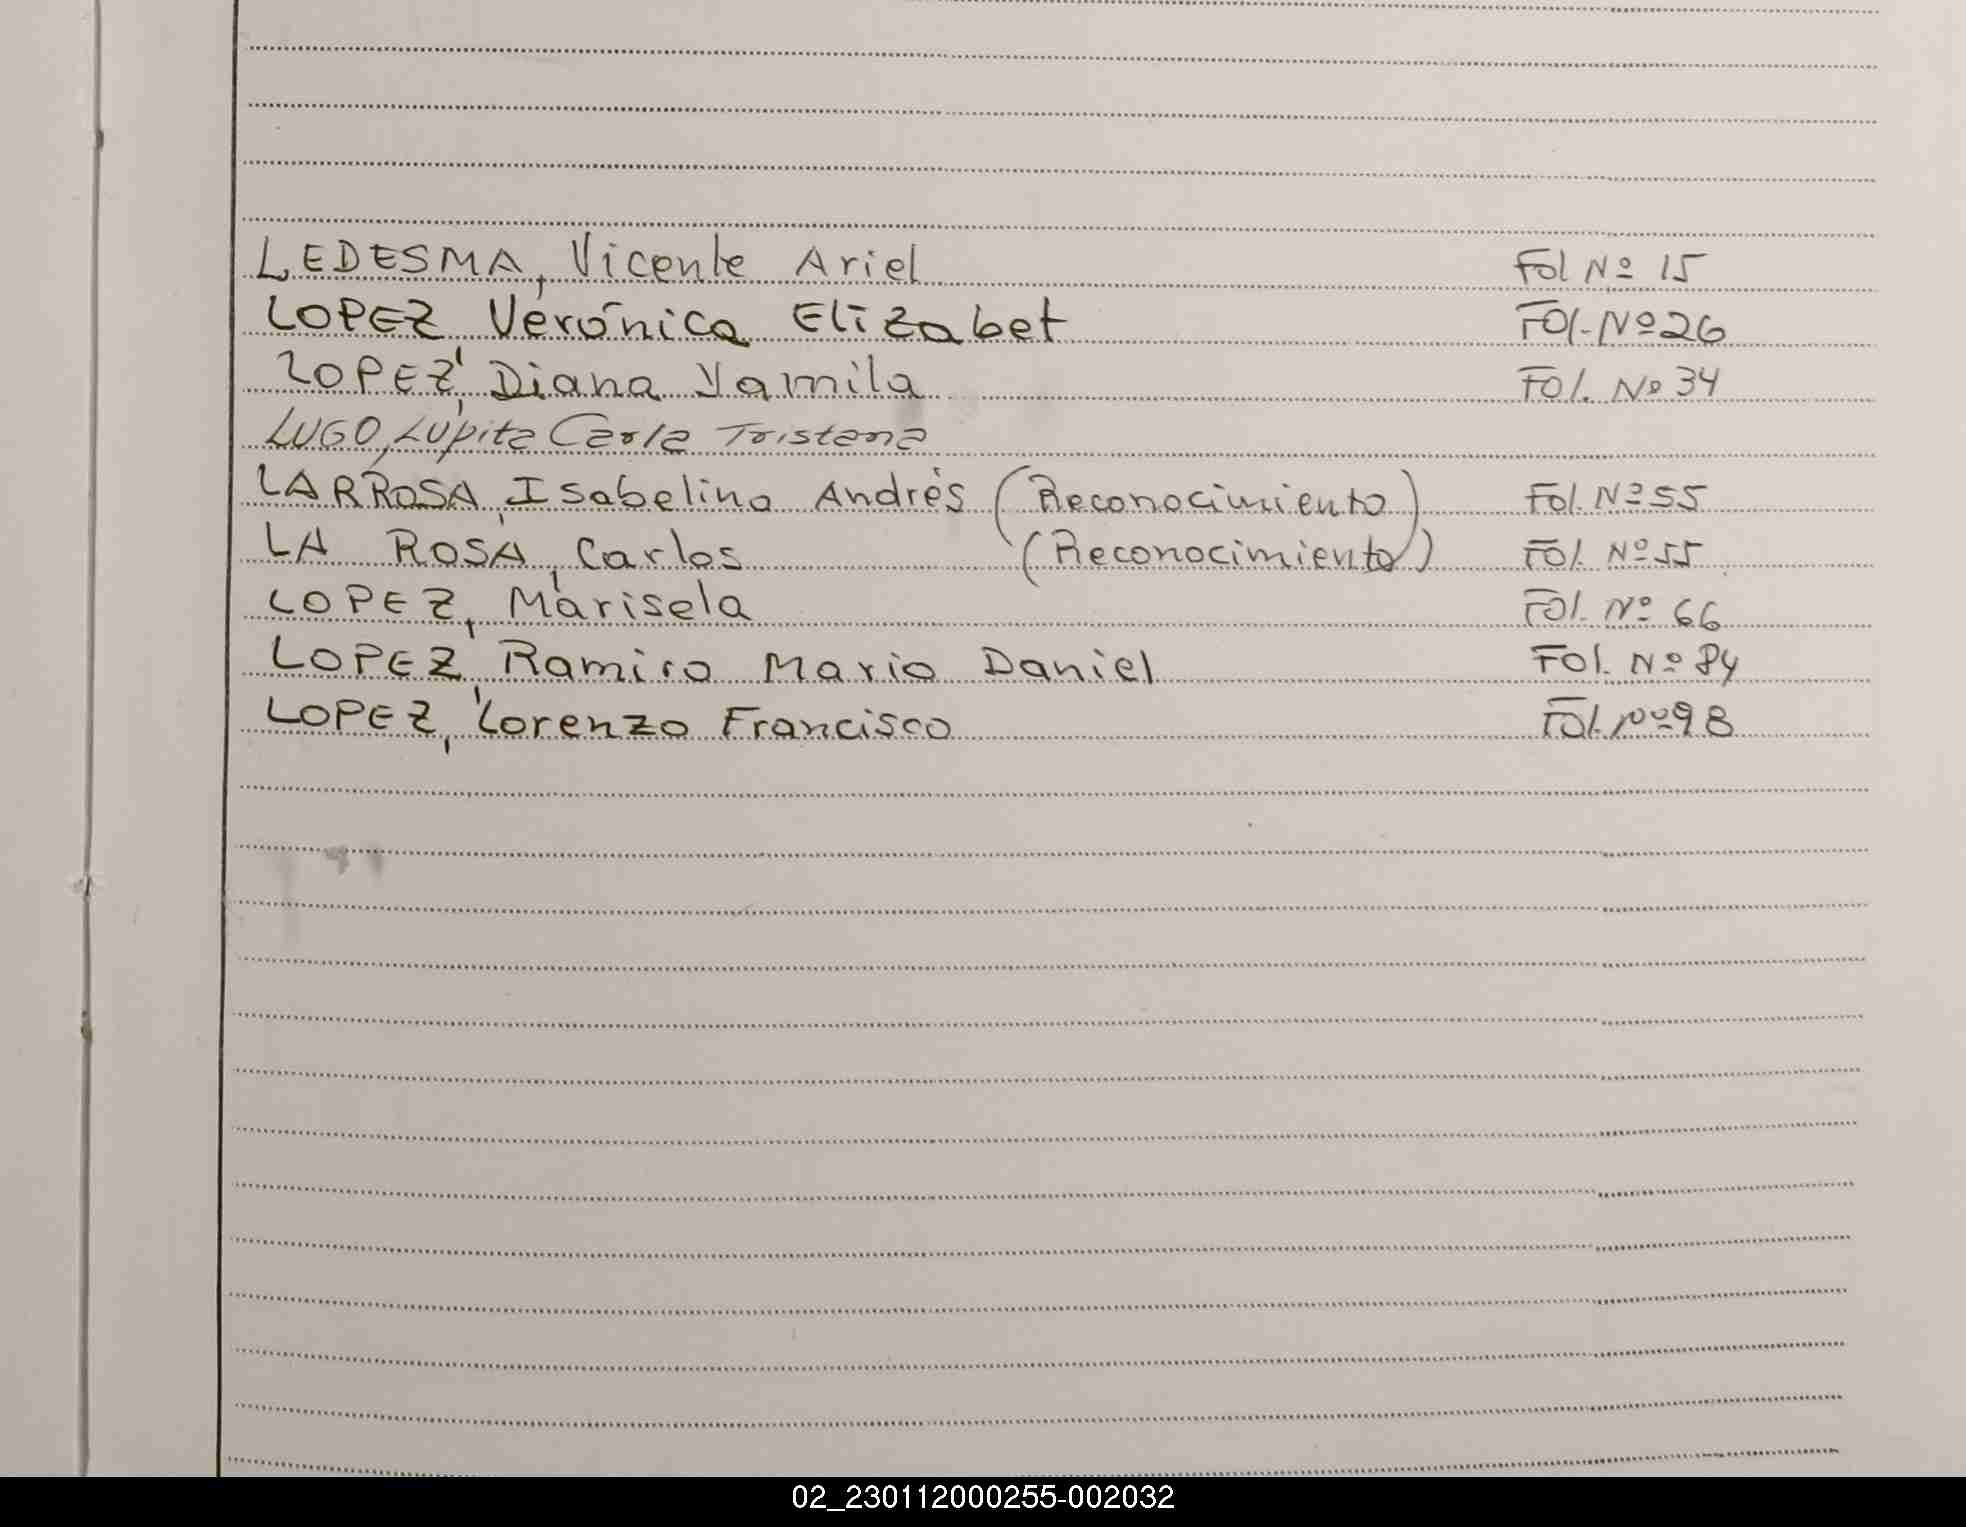 LEDESMA, Vicente Ariel Fol Nº 15
LOPEZ, Verónica Elizabet Fol. Nº 26
LOPEZ, Diana Yamila Fol. Nº 34
LUGO, Lupita Carla Tristana
LARROSA, Isabelino Andrés (Reconocimiento) Fol. Nº 55
LA ROSA, Carlos (Reconocimiento) Fol. Nº 55
LOPEZ, Marisela Fol. Nº 66
LOPEZ, Ramiro Mario Daniel Fol. Nº 84
LOPEZ, Lorenzo Francisco Fol. Nº 98
02_230112000255-002032